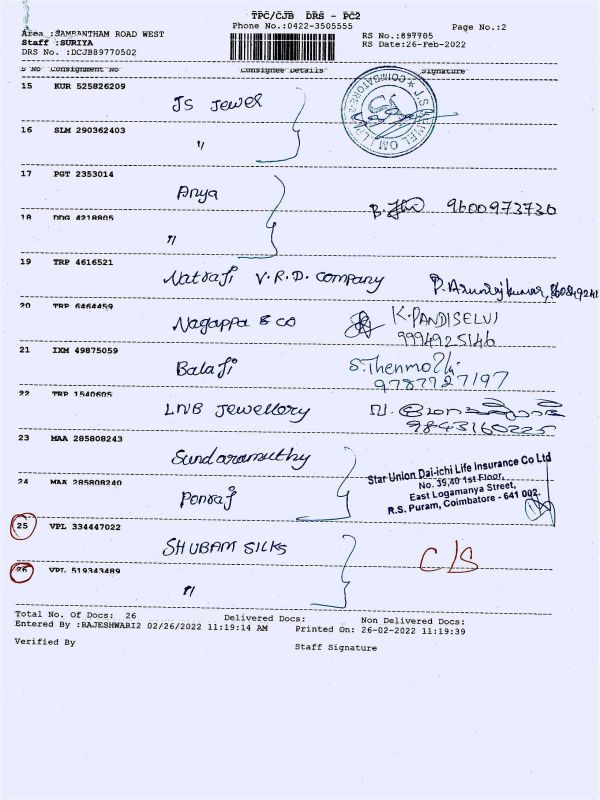 TPC/CJB DRS - PC2
Phone No.:0422-3505555
Page No.:2
Area :SAMBANTHAM ROAD WEST
RS No.:897705
Staff :SURIYA
RS Date:26-Feb-2022
DRS No. :DCJB89770502
S No Consignment No Consignee Details Signature
15 KUR 525826209
JS Jewel
16 SLM 290362403
"
17 PGT 2353014
Anya
B. 9600973730
18 DDG 4218805
"
19 TRP 4616521
Natraji V.R.D. Company
P. Arunrajkumar,
20 TRP 6464459
Nagappa & co
K.PANDISELVI
9994925146
21 IXM 49875059
Balaji
S.Thenmozhi
9787727197
22 TRP 1540605
LNB Jewellery
9843160225
23 MAA 285808243
Sundaramuthy
24 MAA 285808240
Ponraj
Star Union Dai-ichi Life Insurance Co Ltd
No. 39,40 1st Floor,
East Logamanya Street,
R.S. Puram, Coimbatore - 641 002.
25 VPL 334447022
SHUBAM SILKS
C/S
26 VPL 519343489
"
Total No. of Docs: 26 Delivered Docs: Non Delivered Docs:
Entered By :RAJESHWARI2 02/26/2022 11:19:14 AM Printed On: 26-02-2022 11:19:39
Verified By
Staff Signature